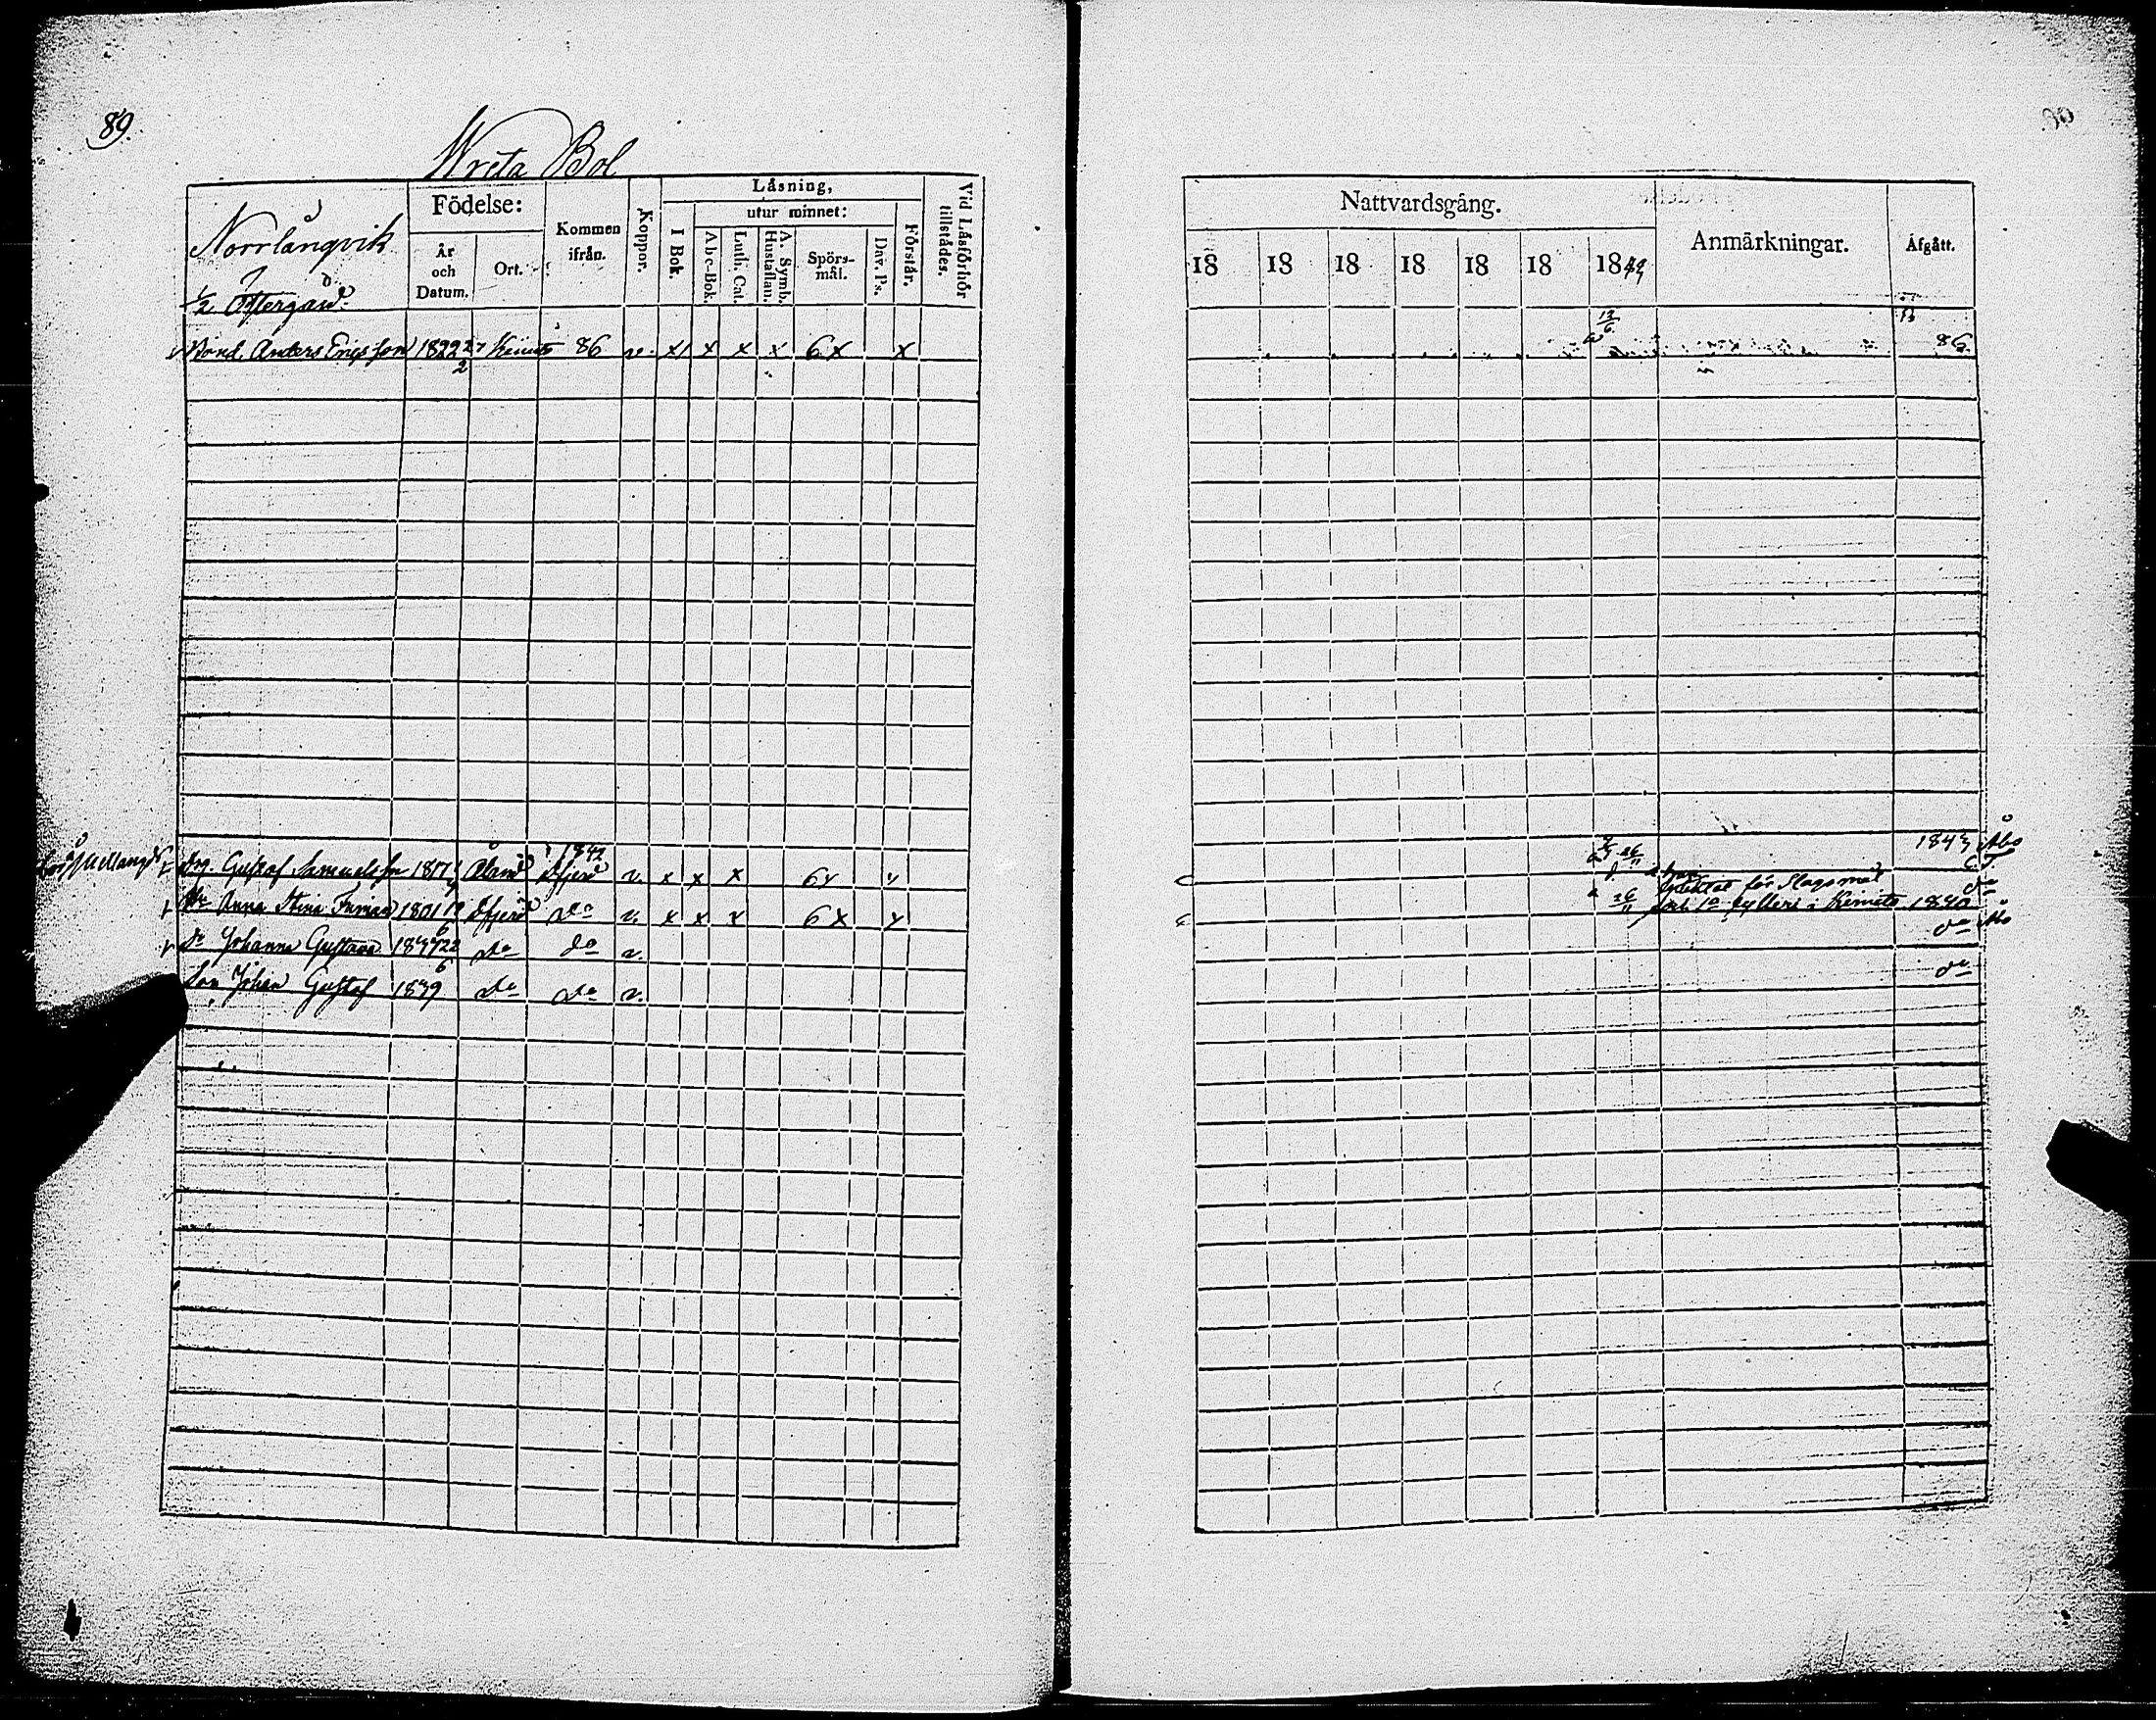 89.
Wreta Bol
Norrlångvik
1/2 Östergård
Födelse:
År och Datum.
Ort.
Kommen ifrån.
Koppor.
Läsning,
I Bok.
utur minnet:
Abc-Bok.
Luth. Cat.
A. Symb. Hustaflan.
Spörsmål.
Dav. Ps.
Förstår.
Vid Läsförhör tillstädes.
Nattvardsgång.
18 18 18 18 18 18 1842
Anmärkningar.
Afgått.
Bond. Anders Ericsson 1822 27/2 Kimito 86 v. x x x x 6x x 12/6 86
1842
Drg. Gustaf Samuelsson 1817 Åland v. x x x 6x x 26/11 för Slagsmål 1843 Åbo
Anna Stina 1801 do v. x x x 6x x 26/11 fylleri i Kimito 1840
Dr Johanna Gustava 22/6 do do v. do Åbo
Son Johan Gustaf 1839 do do v. do